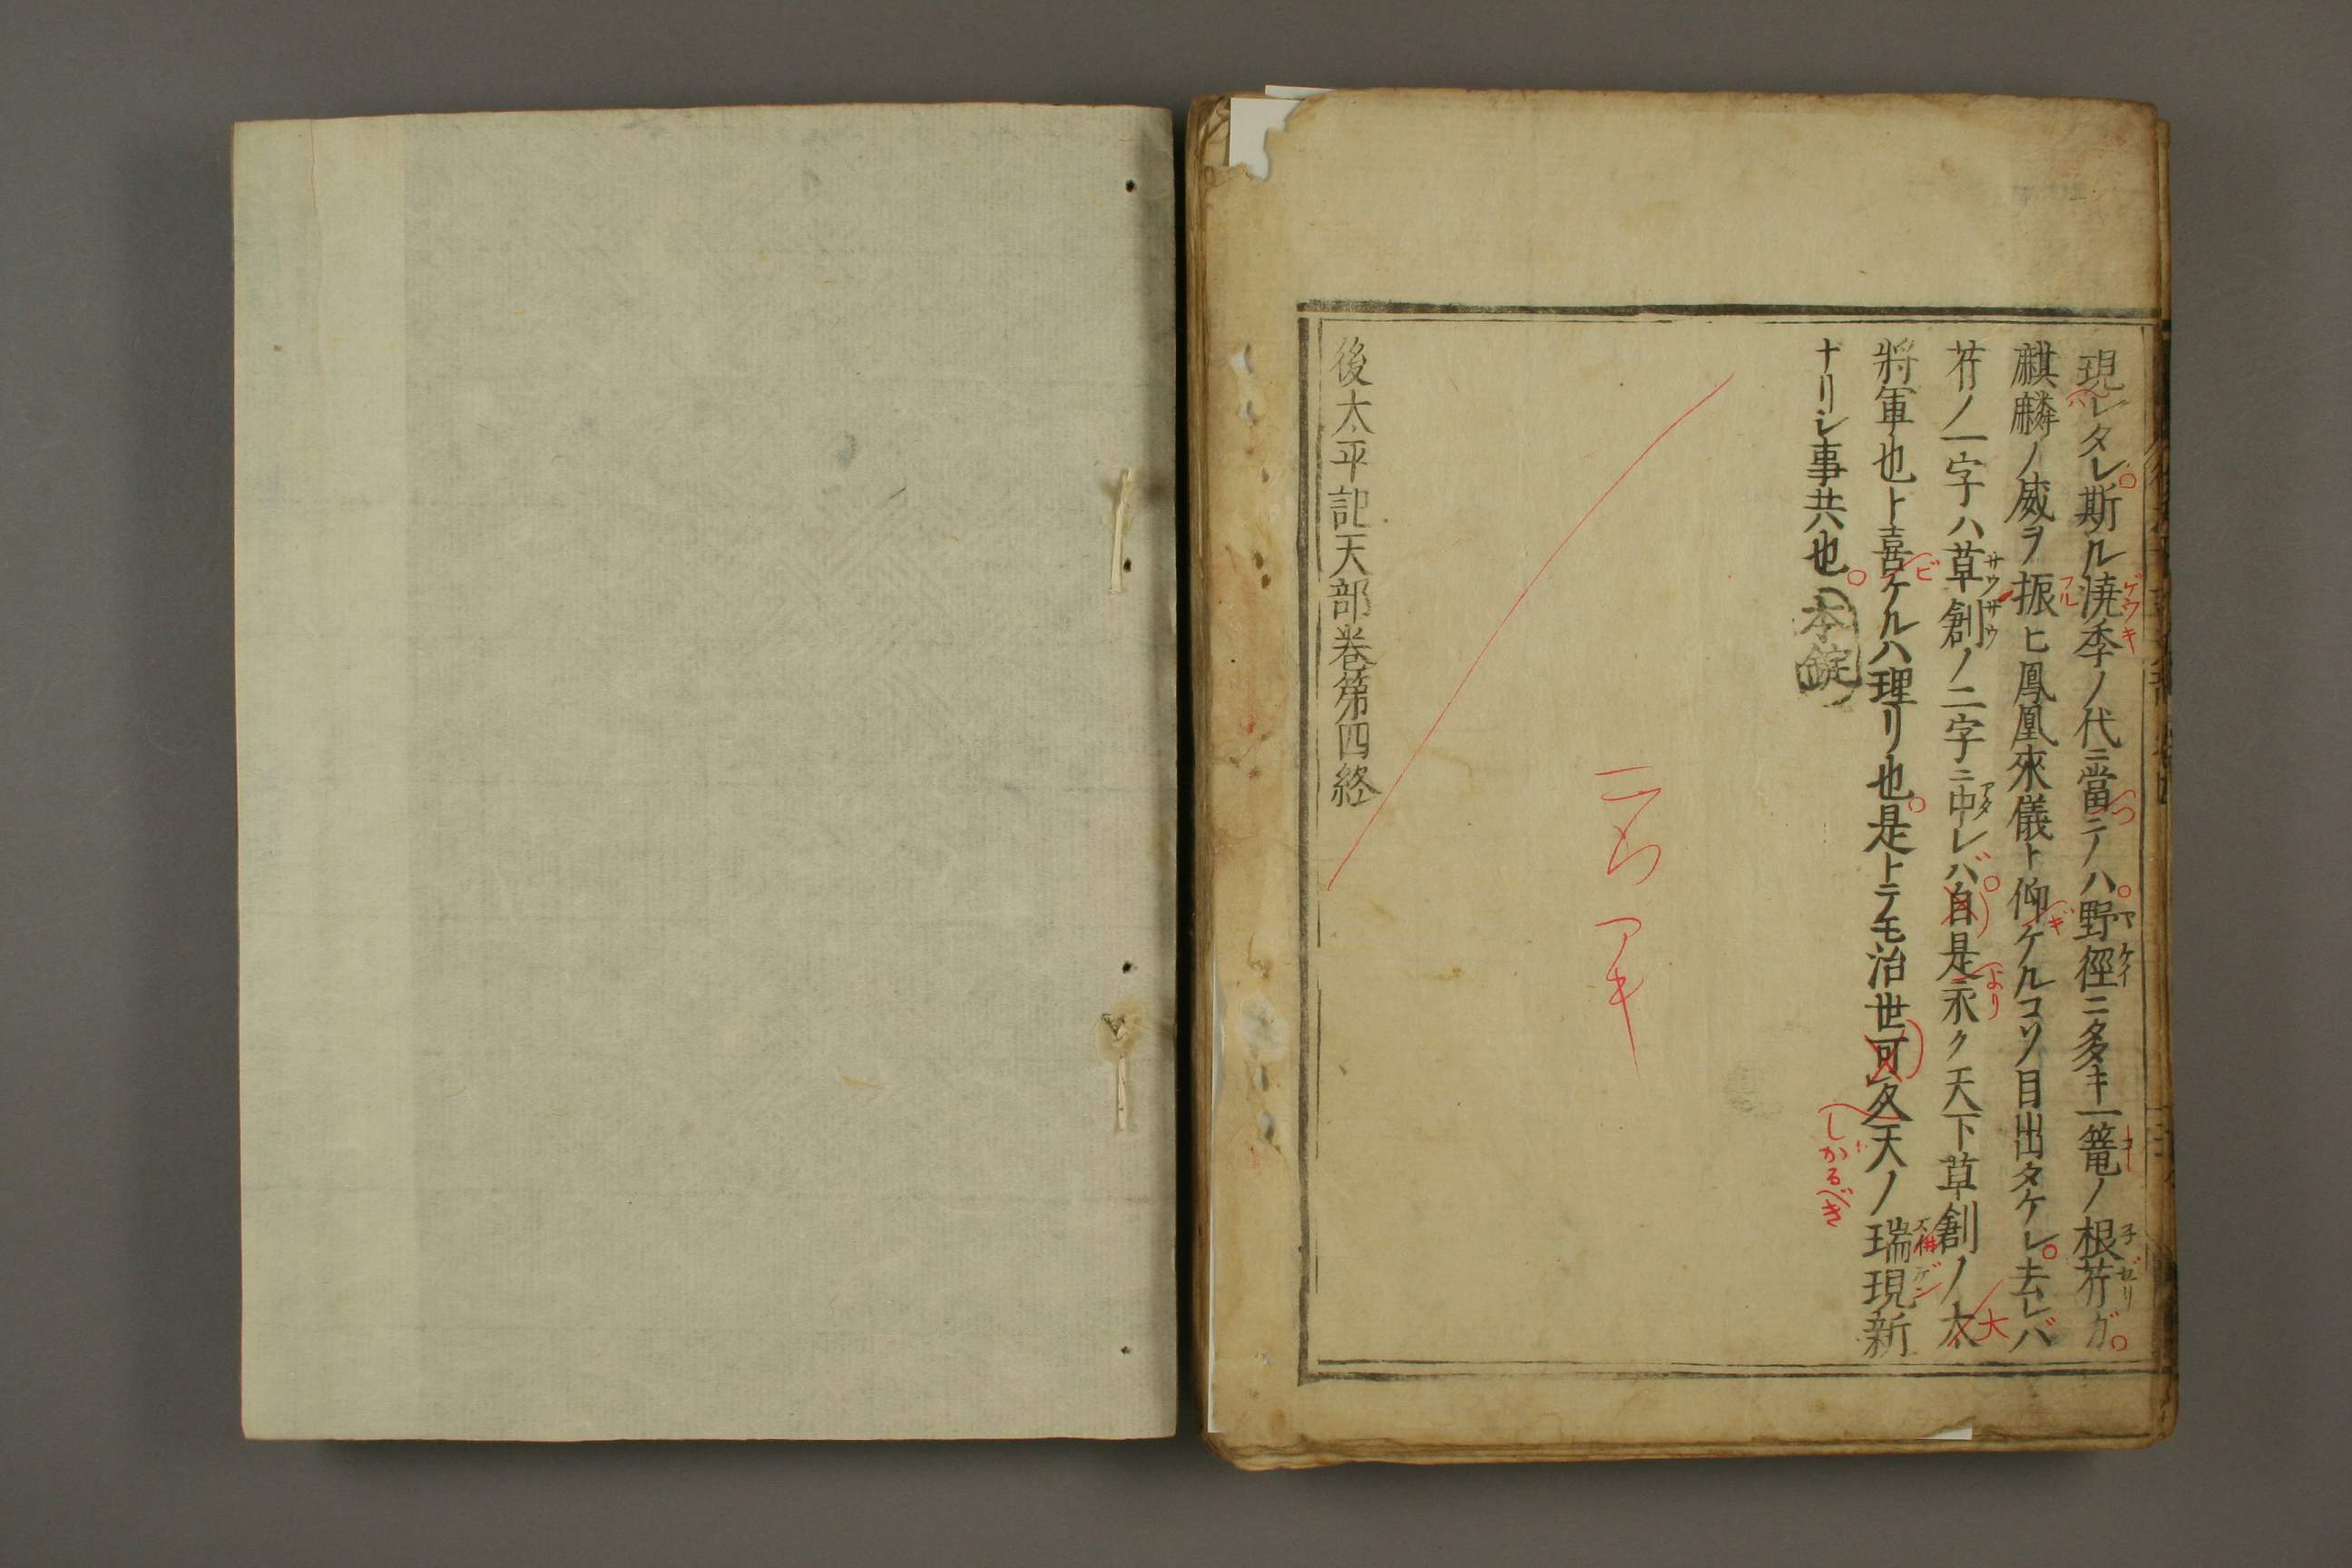 現レタレ斯ル澆季ノ代ニ當テノハ野徑ニ多キ一篭ノ根芹ガ
麒麟ノ威ヲ振ヒ鳳凰來儀ト仰ケルコソ目出タケレ去レバ
芹ノ一字ハ草創ノ二字ニ中レバ自是永ク天下草創ノ太
將軍也ト喜ケルハ理リ也是トテモ治世可久天ノ瑞現新
ナリシ事共也
本錠
しかるべき
アキ
後太平記天部卷第四終